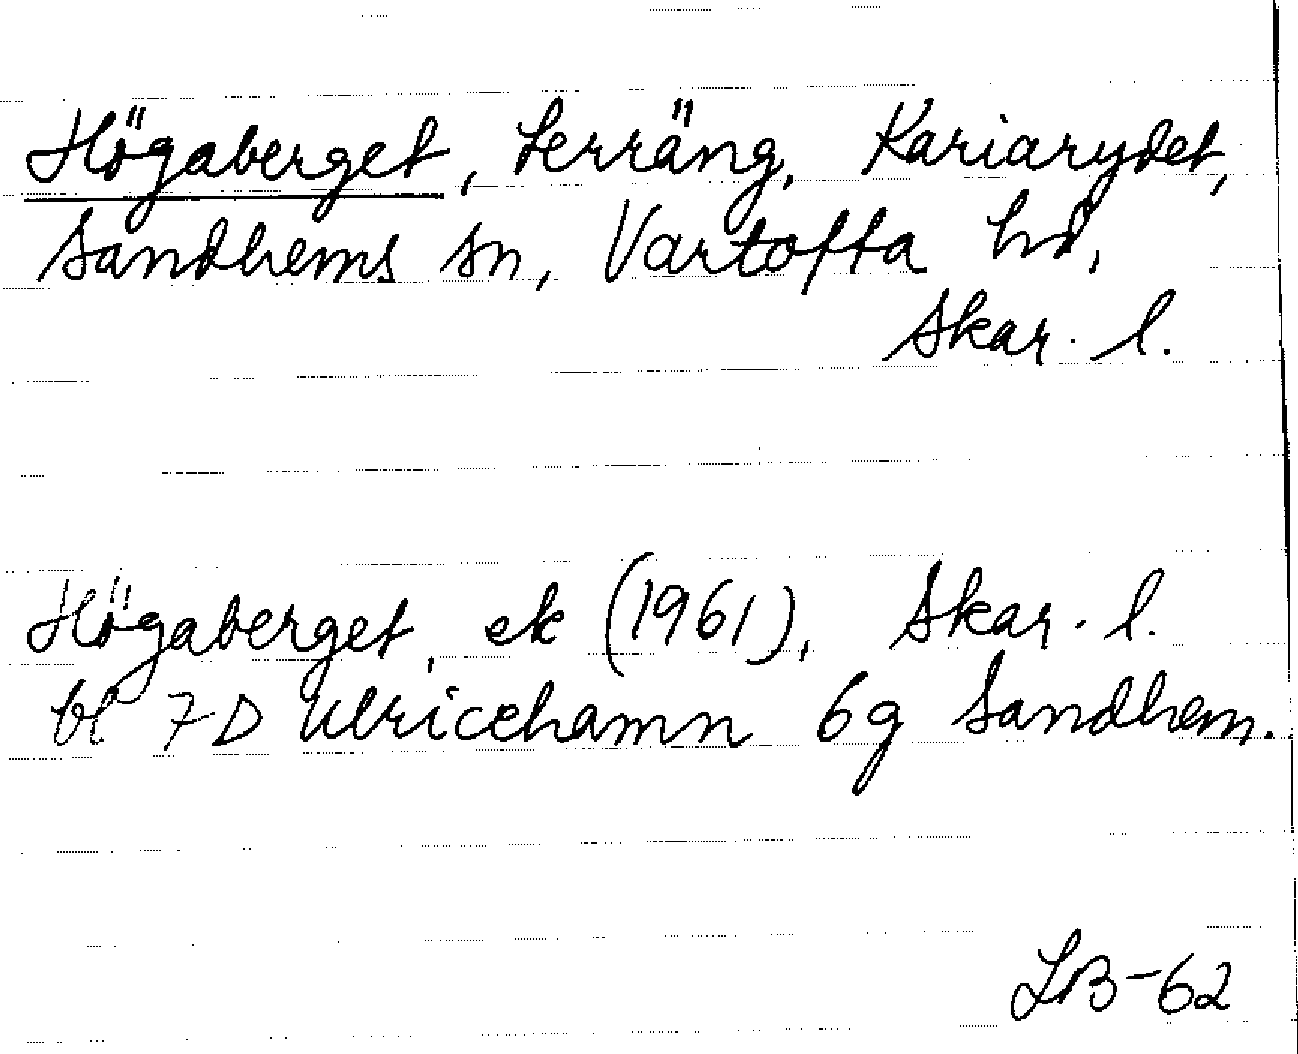 Högaberget, terräng, Kariarydet,
Sandhems sn, Vartofta hd,
Skar. l.
Högaberget, ek (1961), Skar. l.
bl 7D Ulricehamn 6g Sandhem.
LB-62